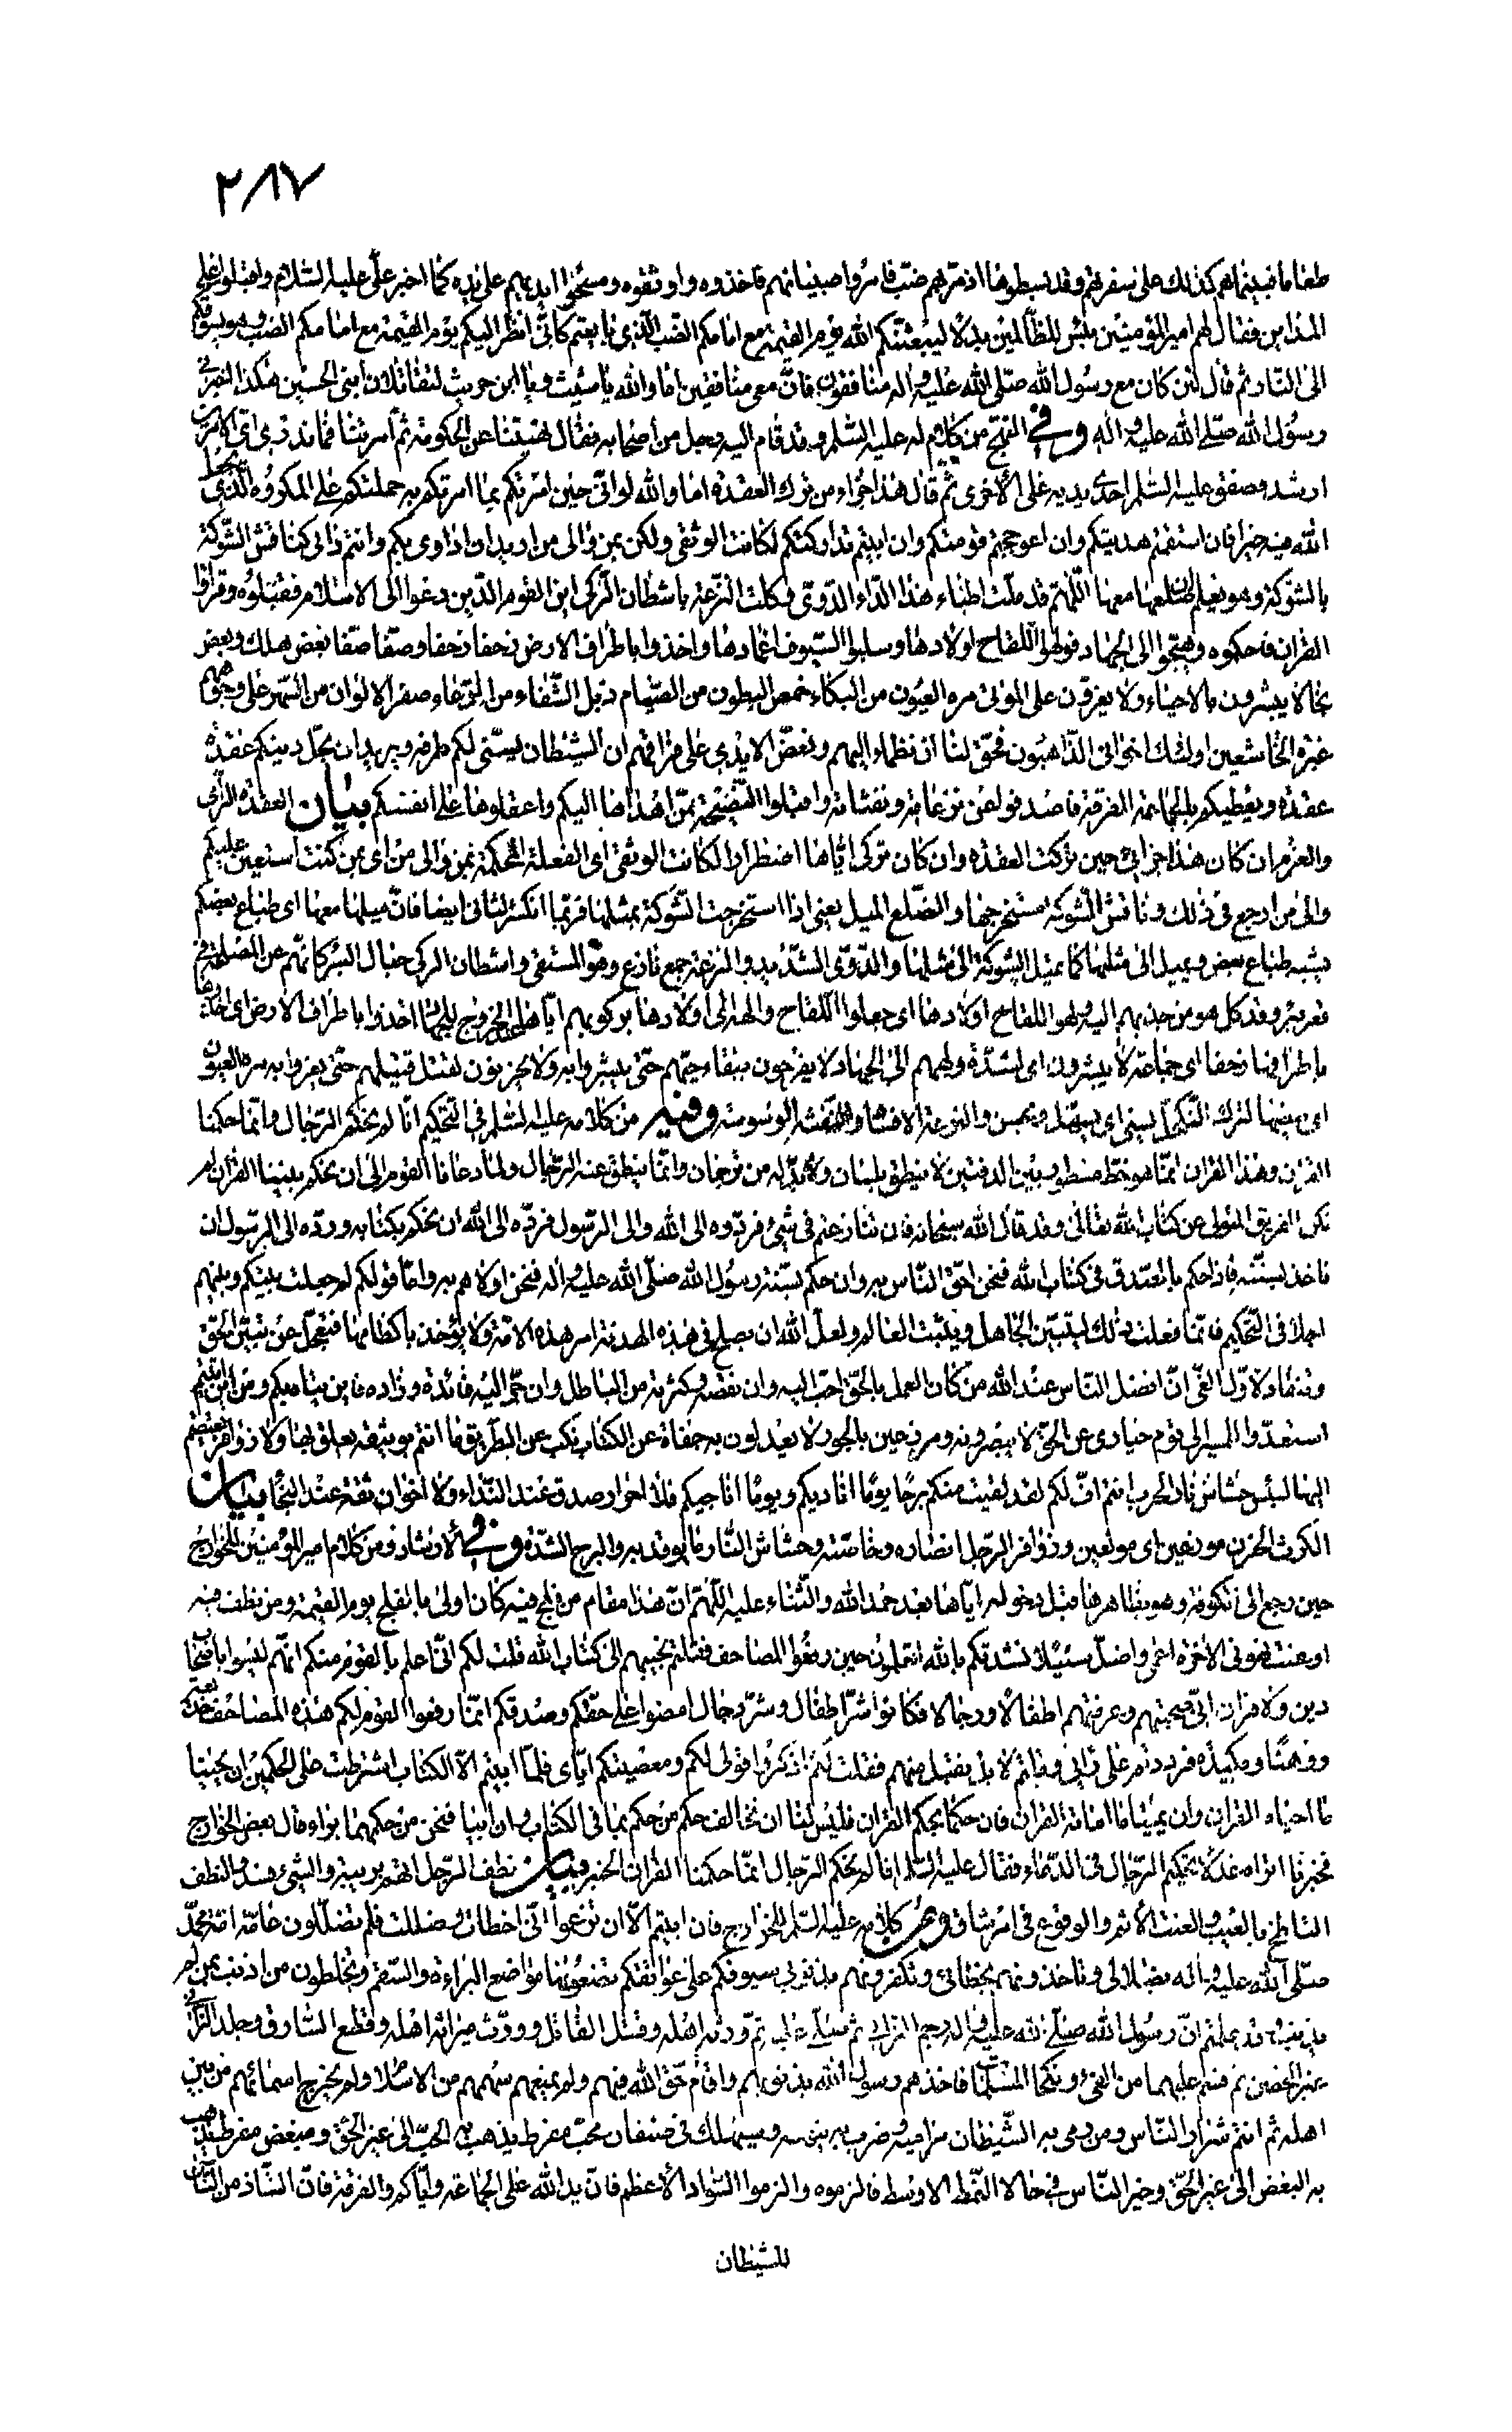 ٢٨٧
طعاما فبينما هم كذلك على سفرتهم وقد بسطوها اذ مرّ بهم ضبّ فامروا صبيانهم فاخذوه واوثقوه ومسحوا ايديهم على يده كما اخبر علىّ عليه السّلام واقبلوا على
المداين فقال لهم امير المؤمنين بئس للظّالمين بدلا ليبعثنّكم الله يوم القيمة مع امامكم الضّب الّذى بايعتم كانّى انظر اليكم يوم القيمة مع امامكم الضبّ وهو يسوقكم
الى النّار ثم قال لئن كان مع رسول الله صلّى الله عليه واله منافقون فانّ معى منافقين اما والله يا شيث ويا ابن حريث لتقاتلان ابنى الحسين هكذا اخبرنى
رسول الله صلّى الله عليه واله وفى النهج من كلام له عليه السّلم وقد قام اليه رجل من اصحابه فقال نهيتنا عن الحكومة ثم امرتنا فما ندرى اى الامرين
ارشد فصفق عليه السّلم احدى يديه على الأخرى ثم قال هذا جزاء من ترك العقدة اما والله لو انّى حين امرتكم بما امرتكم به حملتكم على المكروه الّذى يجعل
الله فيه خيرا فان استقمتم هديتكم وان اعوججتم قومتكم وان ابيتم تداركتكم لكانت الوثقى ولكن بمن والى من اريد ان اداوى بكم وانتم دائى كناقش الشّوكة
بالشوكة وهو يعلم ان ضلعها معها اللّهمّ قد ملّت اطبّاء هذا الدّاء الدّوىّ وكلّت النّزعة باشطان الرّكى اين القوم الّذين دعوا الى الاسلام فقبلوه وقراوا
القران فاحكموه وهيّجوا الى الجهاد فولّهوا اللقاح اولادها وسلبوا السّيوف اغمادها واخذوا باطراف الارض زحفا زحفا وصفّا صفّا بعض هلك وبعض
نجا لا يبشّرون بالاحياء ولا يعزّون على الموتى مره العيون من البكاء خمص البطون من الصّيام ذبل الشّفاء من الدّعاء صفر الالوان من السّهر على وجوههم
غبرة الخاشعين اولئك اخوانى الذّاهبون فحقّ لنا ان نظماء اليهم ونعضّ الايدى على فراقهم ان الشيطان يسنّى لكم طرقه ويريد ان يحلّ دينكم عقدة
عقدة ويعطيكم بالجماعة الفرقة فاصدفوا عن نزغاته ونفثاته واقبلوا النّصيحة ممّن اهداها اليكم واعقلوها على انفسكم بيان العقدة الرّاى
والعزم ان كان هذا جزائى حين تركت العقدة وان كان تركى ايّاها اضطرارا لكانت الوثقى اى الفعلة المحكمة بمن والى من اى بمن كنت استعين عليكم
والى من ارجع فى ذلك وناقش الشّوكة مستخرجها والضّلع الميل يعنى اذا استخرجت الشّوكة بمثلها فربما انكسر الثانى ايضا فانّ ميلها معها اى طباع بعضكم
يشبه طباع بعض ويميل الى مثلها كما يميل الشّوكة الى مثلها والدّوىّ الشّديد والنزعة جمع نازع وهو المستقى واشطان الركى حبال البئر كانّهم عن المصلحة فى
قعر بئر وقد كل هو من جذبهم اليه ولهوا اللقاح اولادها اى جعلوا اللقاح والهة الى اولادها بركوبهم ايّاها للخروج للجهاد اخذوا باطراف الارض اى اخذوها
باطرافها زحفا اى جماعة لا يبشرون اى لشدّة ولههم الى الجهاد لا يفرحون ببقاء حيّهم حتّى يبشّروا به ولا يحزنون لقتل قتيلهم حتّى يعزوا به مره العيون
اى بيضها لترك التّكحل يسنى اى يسهّل ويحسن والنزغة الافشا والنّفثة الوسوسة وفيه من كلامه عليه السّلم فى التحكيم انّا لم نحكّم الرّجال وانّما حكمنا
القران وهذا القران انّما هو خطّ مسطور بين الدفتين لا ينطق بلسان ولا بدّ له من ترجمان وانّما ينطق عنه الرّجال ولمّا دعانا القوم الى ان نحكم بيننا القران لم
نكن الفريق المتولى عن كتاب الله تعالى وقد قال الله سبحانه فان تنازعتم فى شئ فردّوه الى الله والى الرّسول فردّه الى الله ان نحكم بكتابه وردّه الى الرّسول ان
ناخذ بسنّته فاذا حكم بالصّدق فى كتاب الله فنحن احقّ النّاس به وان حكم بسنّة رسول الله صلّى الله عليه واله فنحن اولاهم به وامّا قولكم لم جعلت بينكم وبينهم
اجلا فى التّحكيم فانّما فعلت ذلك ليتبيّن الجاهل ويتثبّت العالم ولعلّ الله ان يصلح فى هذه الهدنة امر هذه الامّة ولا يؤخذ باكظامها فتعجل عن تبيّن الحقّ
وتنقاد لاوّل الغىّ انّ افضل النّاس عند الله من كان العمل بالحقّ احبّ اليه وان نقصه وكرثه من الباطل وان جرّ اليه فائدة وزاده فاين يتاه بكم ومن اين اتيتم
استعدّوا للمسير الى قوم حيارى عن الحقّ لا يبصرونه وموزعين بالجور لا يعدلون به جفاة عن الكتاب نكب عن الطّريق ما انتم بوثيقة يعلق بها ولا زوافر يعتصم
اليها لبئس حشاش نار الحرب انتم افّ لكم لقد لقيت منكم برحا يوما اناديكم ويوما اناجيكم فلا احرار صدق عند النّداء ولا اخوان ثقة عند النّجاء بيان
الكرث الحزن موزعين اى مولعين وزوافر الرّجل انصاره وخاصّته وحشاش النّار ما يوقد به والبرح الشّدّة وفى الارشاد ومن كلام امير المؤمنين للخوارج
حين رجع الى الكوفة وهو بظاهرها قبل دخوله ايّاها بعد حمد الله والثّناء عليه اللّهمّ انّ هذا مقام من فلج فيه كان اولى بالفلج يوم القيمة ومن نطف فيه
او عنت فهو فى الاخرة اعمى واضلّ سبيلا نشدتكم بالله اتعلمون حين رفعوا المصاحف فقلتم نجيبهم الى كتاب الله قلت لكم انّى اعلم بالقوم منكم انّهم ليسوا باصحاب
دين ولا قران انّى صحبتهم وعرفتهم اطفالا ورجالا فكانوا شرّ اطفال وشرّ رجال امضوا على حقّكم وصدقكم انّما رفعوا القوم لكم هذه المصاحف خديعة
ووهنا ومكيدة فرددتم على رايى وقلتم لا بل نقبل منهم فقلت لكم اذكروا قولى لكم ومعصيتكم ايّاى فلمّا ابيتم الّا الكتاب اشترطت على الحكمين ان يحييا
ما احياه القران وان يميتا ما اماته القران فان حكما بحكم القران فليس لنا ان نخالف حكم من حكم بما فى الكتاب وان ابيا فنحن من حكمهما براء وقال بعض الخوارج
فخبرنا اتراه عدلا تحكيم الرّجال فى الدّماء فقال عليه السّلم انا لم نحكم الرّجال انّما حكمنا القران الخبر بيان نطف الرّجل اتّهم بريبة والشئ فسد والنطف
التلطخ بالعيب والعنت الأثم والوقوع فى امر شاق ومن كلامه عليه السّلم للخوارج فان ابيتم الّا ان تزعموا انّى اخطات وضللت فلم تضلّلون عامّة امّة محمّد
صلّى الله عليه واله بضلالى وتاخذونهم بخطائى وتكفرونهم بذنوبى سيوفكم على عواتقكم تضعونها مواضع البراءة والسّقم وتخلطون من اذنب بمن لم
يذنب وقد علمتم انّ رسول الله صلّى الله عليه واله رجم الزانى ثم صلّى عليه ثمّ ورثه اهله وقتل القاتل وورّث ميراثه اهله وقطع السّارق وجلد الزّانى
غير المحصن ثم قسم عليهما من الفئ ونكحا المسلمات فاخذهم رسول الله بذنوبهم واقام حقّ الله فيهم ولم يمنعهم سهمهم من الاسلام ولم يخرج اسمائهم من بين
اهله ثم انتم شرار النّاس ومن رمى به الشّيطان مراميه وضرب به تيهه وسيهلك فىّ صنفان محبّ مفرط يذهب به الحبّ الى غير الحقّ ومبغض مفرط يذهب
به البغض الى غير الحقّ وخير النّاس فىّ حالا النّمط الاوسط فالزموه والزموا السّواد الأعظم فانّ يد الله على الجماعة وايّاكم والفرقة فانّ الشّاذ من النّاس
للشيطان